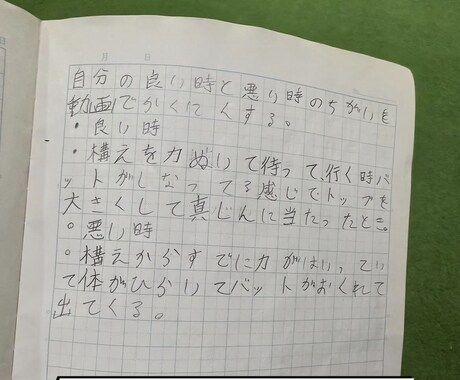 月 日
自分の良い時と悪い時のちがいを
動画でかくにんする。
・良い時
・構えを力ぬいて待って、行く時バ
ットがしなってる感じでトップを
大きくして真じんに当たったとき。
・悪い時
・構えからすでに力がはいってい
て体がひらいてバットがおくれて
出てくる。